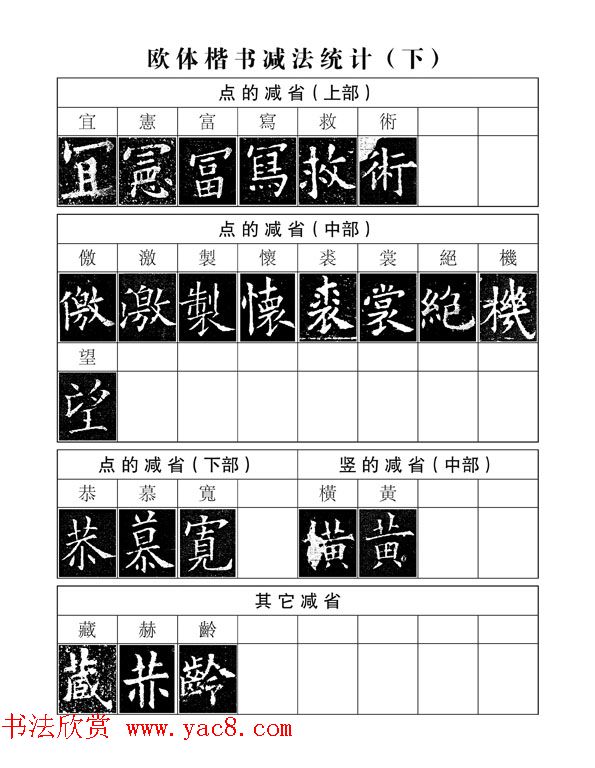 欧体楷书减法统计（下）
点的减省（上部）
宜 憲 富 寫 救 術
宜 憲 富 寫 救 術
点的减省（中部）
儌 激 製 懷 裘 裳 絕 機
儌 激 製 懷 裘 裳 絕 機
望
望
点的减省（下部） 竖的减省（中部）
恭 慕 寬 橫 黃
恭 慕 寬 橫 黃
其它减省
藏 赫 齡
藏 赫 齡
书法欣赏 www.yac8.com